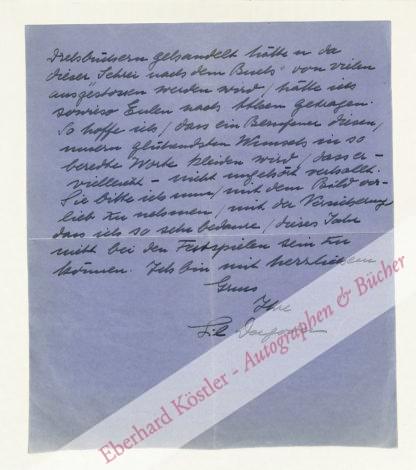 Drehbüchern gehandelt hätte u da
dieser "Schrei nach dem Buch" von vielen
ausgestossen werden wird / hätte ich
sowieso Eulen nach Athen getragen.
So hoffe ich / dass ein Berufener diesen /
unsern glühendsten Wunsch in so
beredte Worte kleiden wird / dass er -
vielleicht - nicht ungehört verhallt.
Sie bitte ich nun / mit dem Bild vor-
lieb zu nehmen / mit der Versicherung
dass ich so sehr bedaure / dieses Jahr
nicht bei den Festspielen sein zu
können. Ich bin mit herzlichem
Gruss
Ihre
Lil Dagover
Eberhard Köstler - Autographen & Bücher